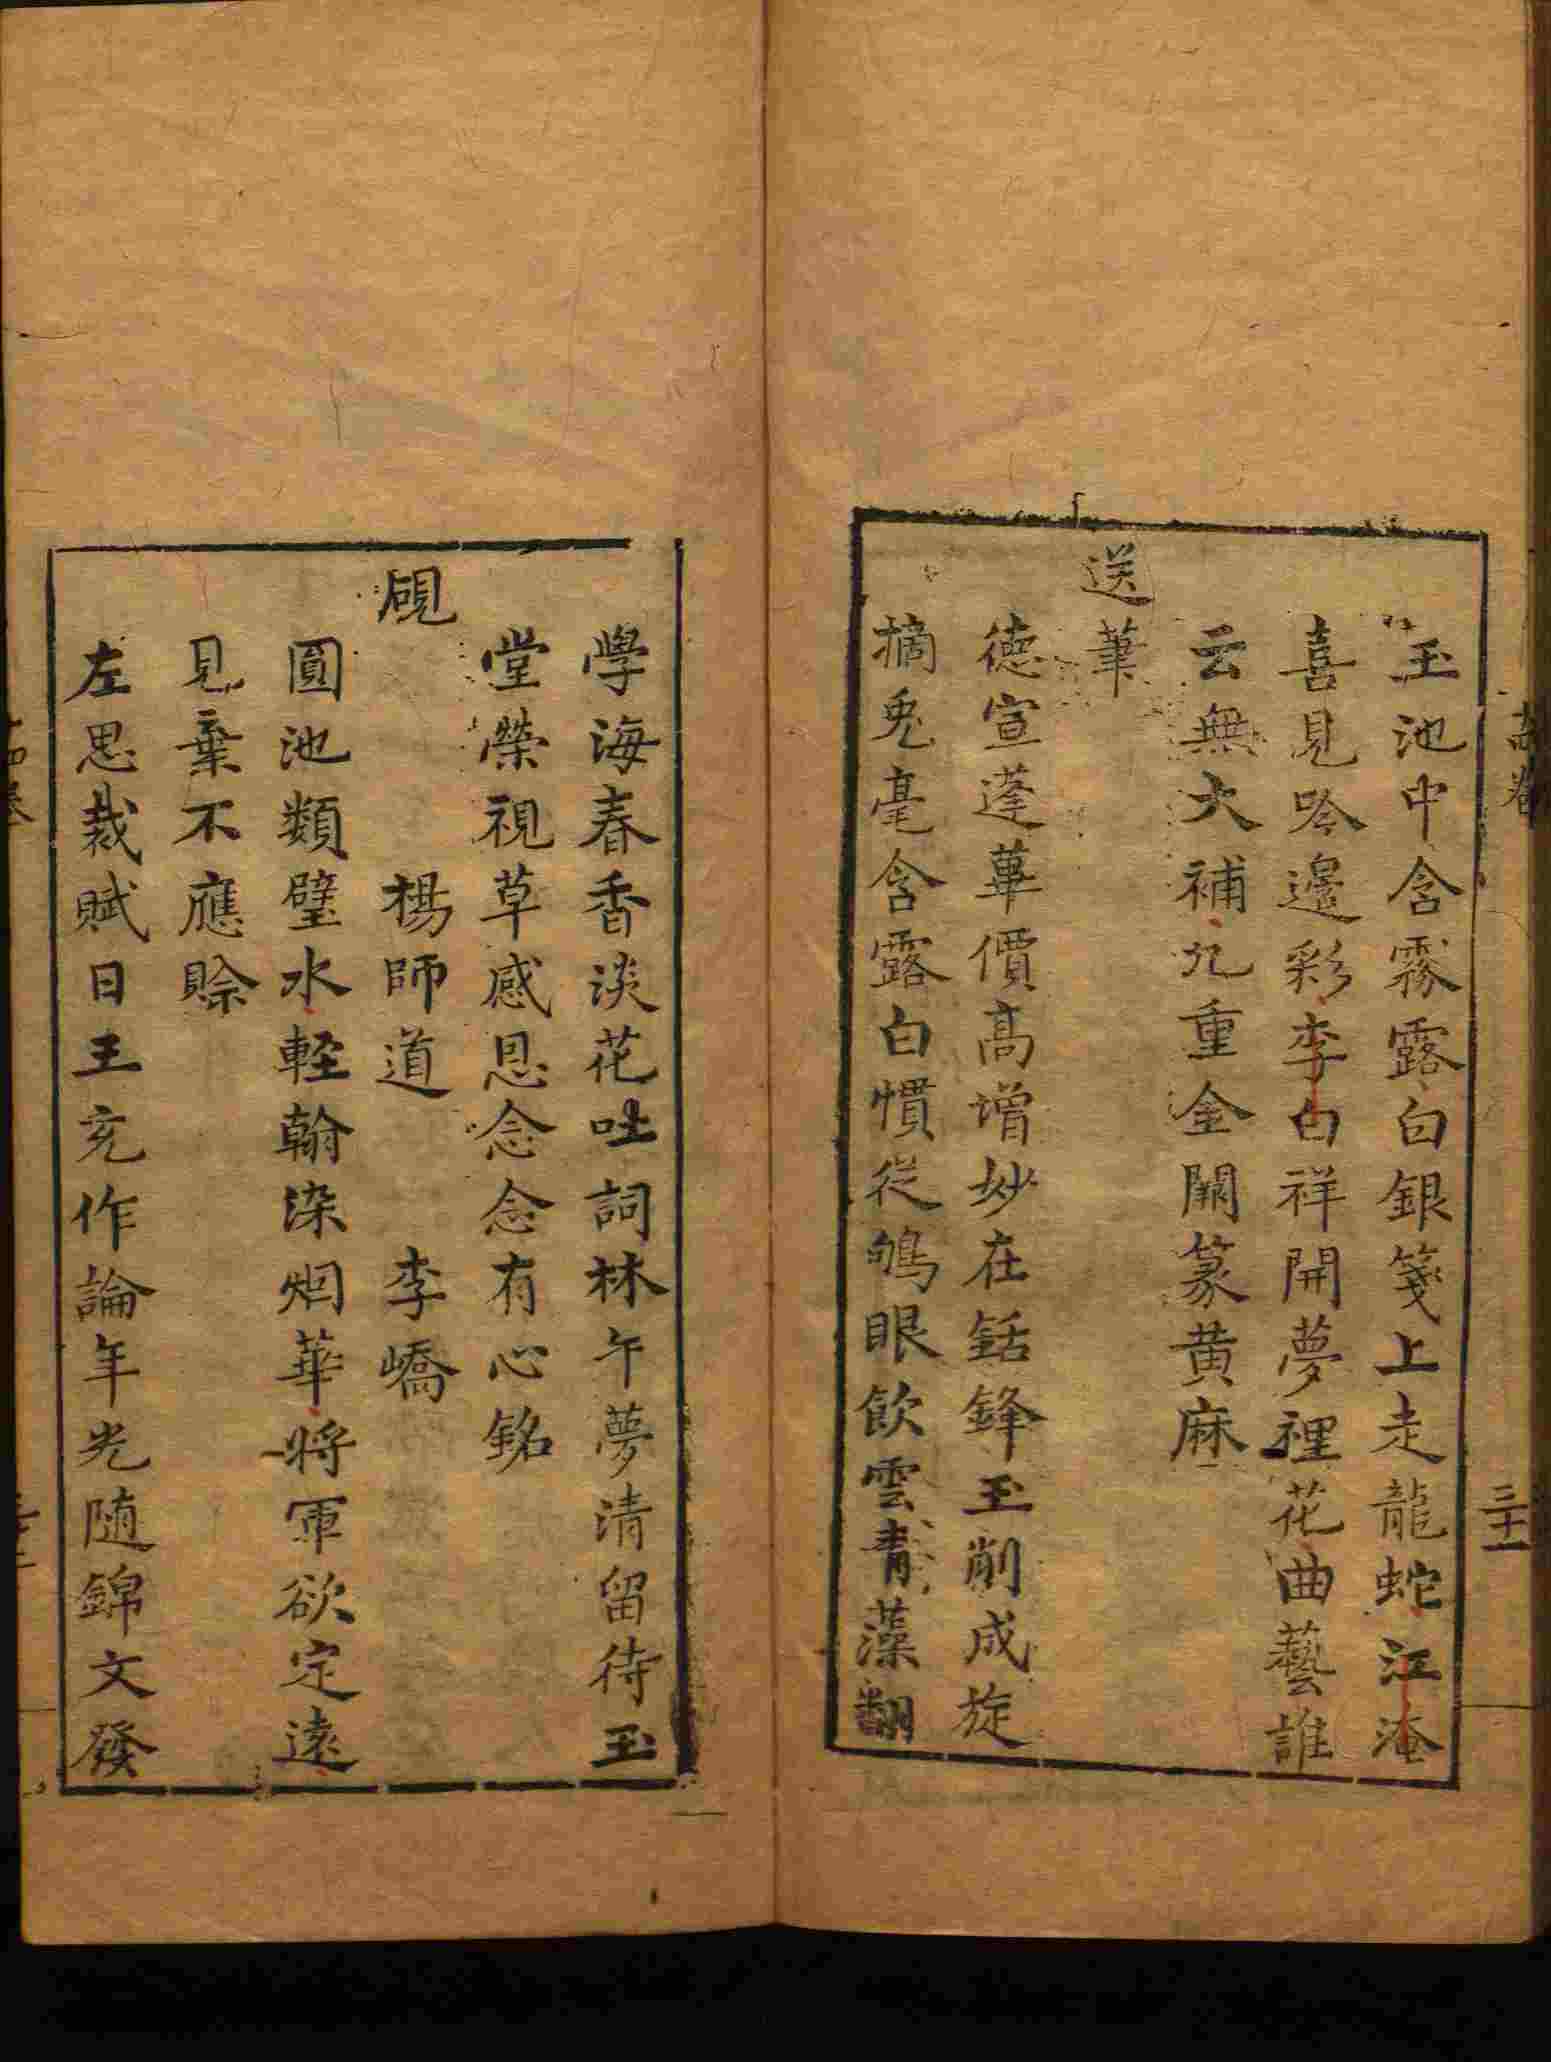 玉池中含霧露白銀箋上走龍蛇江淹
喜見吟邊彩李白祥開夢裡花曲藝誰
云無大補九重金闕篆黄麻
送筆
德宣蓬蓽價高增妙在銛鋒玉削成旋
摘兎毫含露白慣従鴝眼飲雲青藻翻
學海春香淡花吐詞林午夢清留待玉
堂榮視草感恩念念有心銘
硯
楊師道 李嶠
圓池類璧水輕翰染烟華將軍欲定遠
見棄不應賖
左思裁賦日王充作論年光随錦文發
三十一